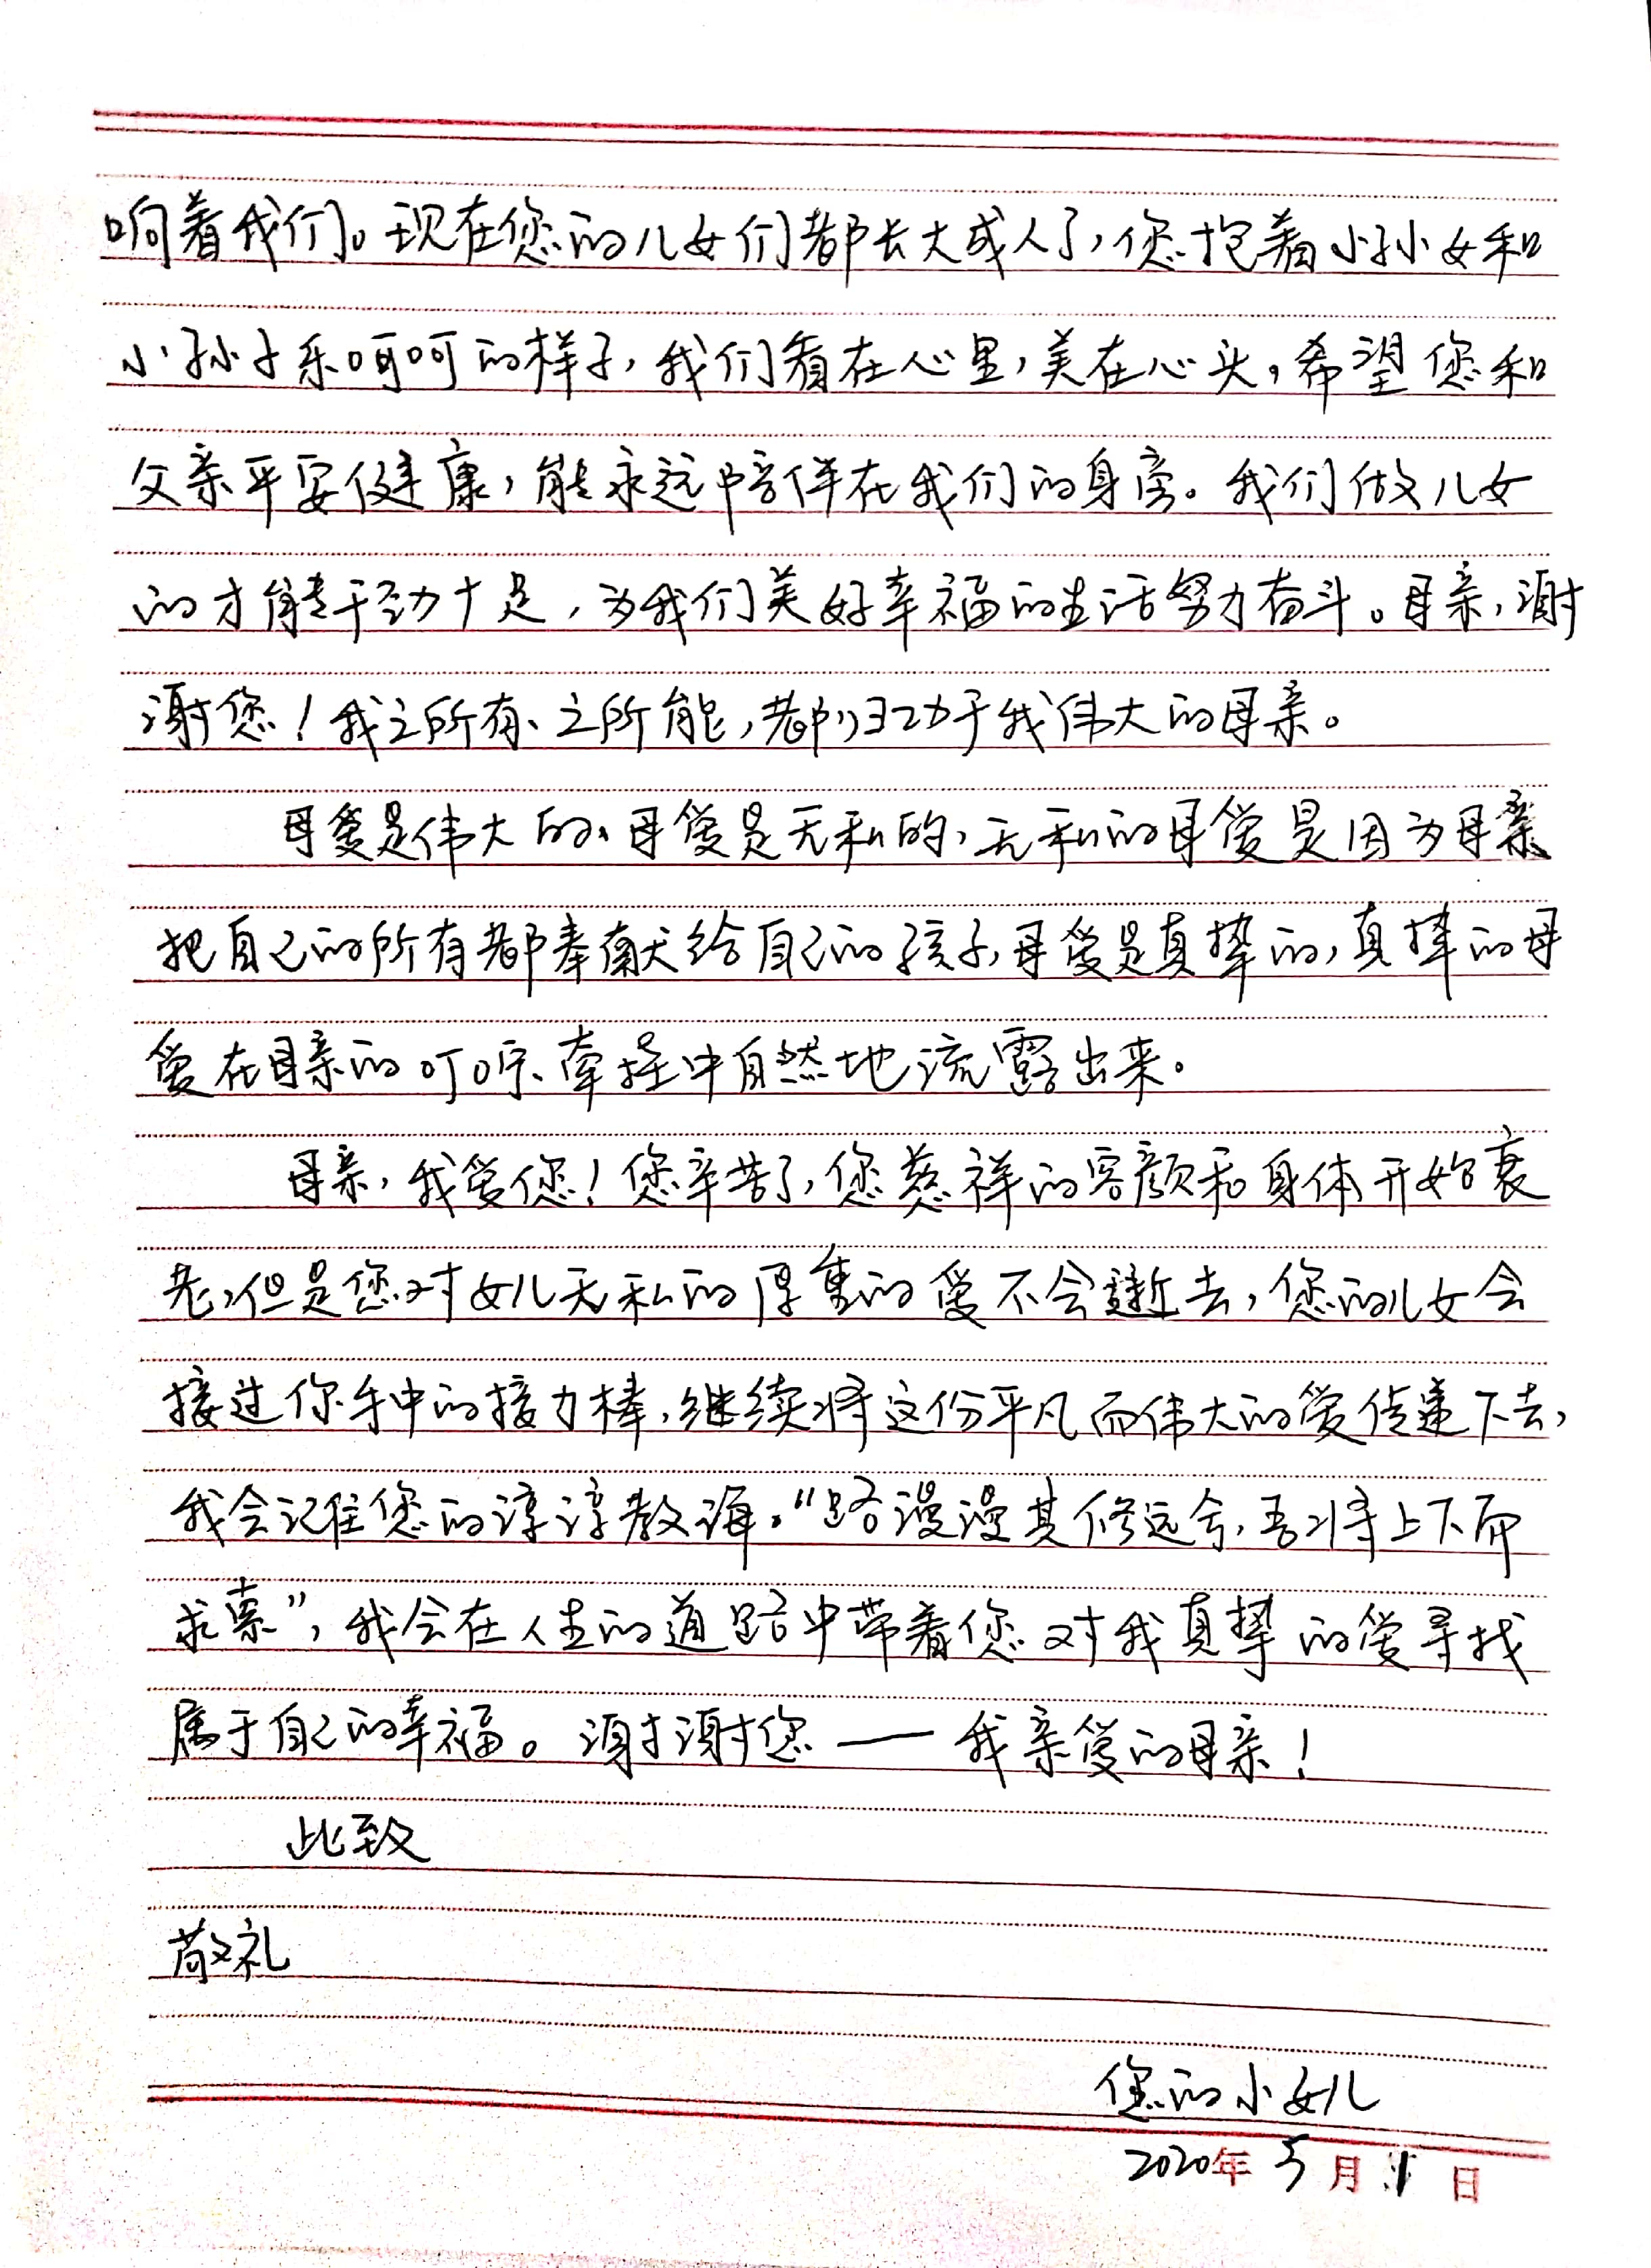 响着我们。现在您的儿女们都长大成人了，您抱着小孙女和
小孙子乐呵呵的样子，我们看在心里，美在心头，希望您和
父亲平安健康，能永远陪伴在我们的身旁。我们做儿女
的才能干劲十足，为我们美好幸福的生活努力奋斗。母亲，谢
谢您！我之所有、之所能，都归功于我伟大的母亲。
母爱是伟大的、母爱是无私的，无私的母爱是因为母亲
把自己的所有都奉献给自己的孩子，母爱是真挚的，真挚的母
爱在母亲的叮咛、牵挂中自然地流露出来。
母亲，我爱您！您辛苦了，您慈祥的容颜和身体开始衰
老，但是您对女儿无私的厚重的爱不会逝去，您的儿女会
接过你手中的接力棒，继续将这份平凡而伟大的爱传递下去，
我会记住您的谆谆教诲。“路漫漫其修远兮，吾将上下而
求索”，我会在人生的道路中带着您对我真挚的爱寻找
属于自己的幸福。谢谢您——我亲爱的母亲！
此致
敬礼
您的小女儿
2020年5月1日